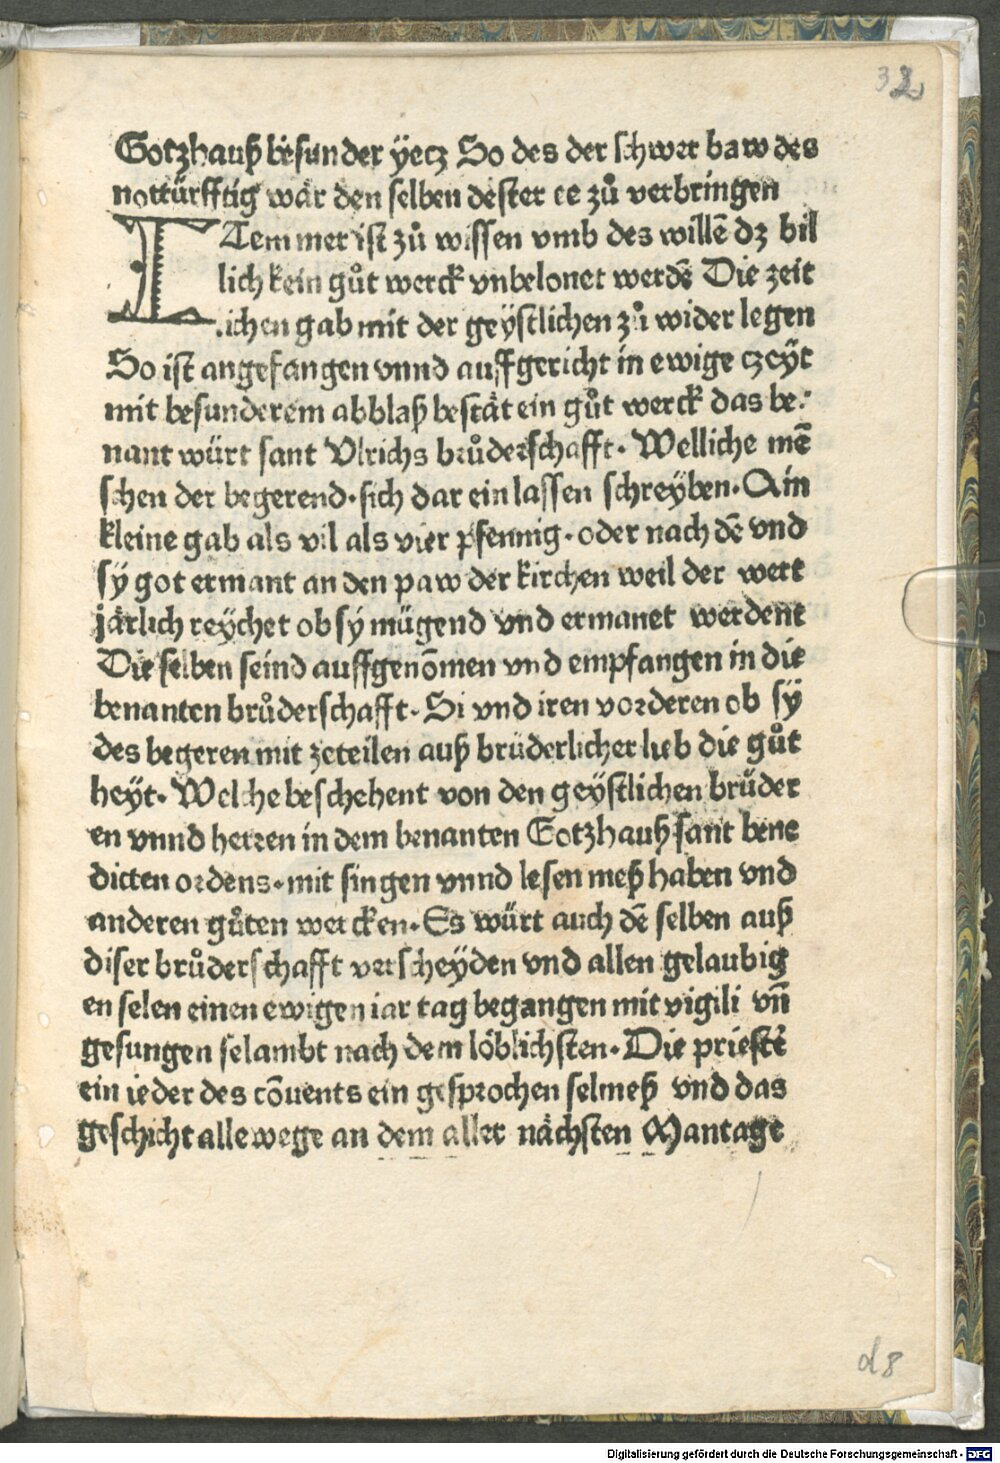 32
Gotzhauß besunder yetz So des der schwer baw des
nottürfftig wär den selben dester ee zů verbringen
ITem mer ist zů wissen vmb des willē dz bil
lich kein gůt werck vnbelonet werdē Die zeit
lichen gab mit der geÿstlichen zů wider legen
So ist angefangen vnnd auffgericht in ewige czeÿt
mit besunderem abblaß bestät ein gůt werck das be⸗
nant würt sant Vlrichs brůderschafft. Welliche mē
schen der begerend. sich dar ein lassen schreÿben. Ain
kleine gab als vil als vier pfennig. oder nach dē vnd
sÿ got ermant an den paw der kirchen weil der wert
järlich reÿchet ob sÿ mügend vnd ermanet werdent
Die selben seind auffgenōmen vnd empfangen in die
benanten brůderschafft. Si vnd iren vorderen ob sÿ
des begeren mit zeteilen auß brüderlicher lieb die gůt
heÿt. Welche beschehent von den geÿstlichen brůder
en vnnd herren in dem benanten Gotzhauß sant bene
dicten ordens. mit singen vnnd lesen meß haben vnd
anderen gůten wercken. Es würt auch dē selben auß
diser brůderschafft verscheÿden vnd allen gelaubig
en selen einen ewigen iar tag begangen mit vigili vñ
gesungen selambt nach dem löblichsten. Die priestē
ein ieder des cōuents ein gesprochen selmeß vnd das
geschicht allewege an dem aller nächsten Mantage
d8
Digitalisierung gefördert durch die Deutsche Forschungsgemeinschaft - DFG